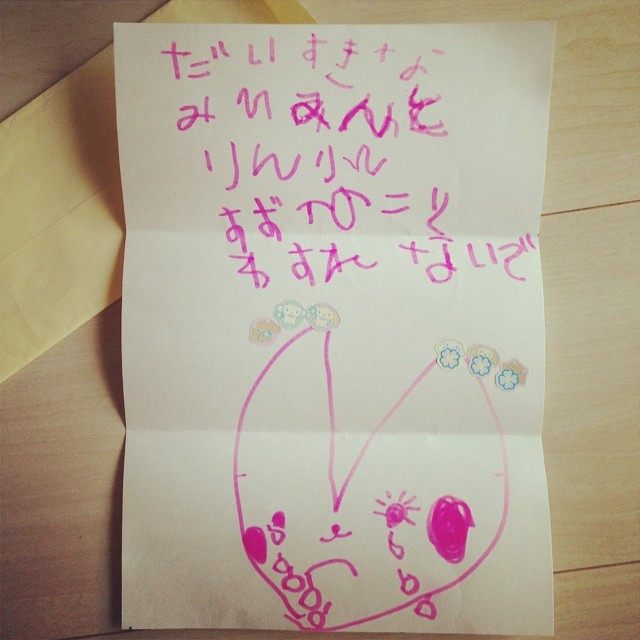 だいすきな
みりあんと
りんりん
すずかのこと
わすれないで